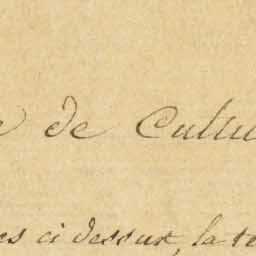 e de Cultu
es ci dessus, la te